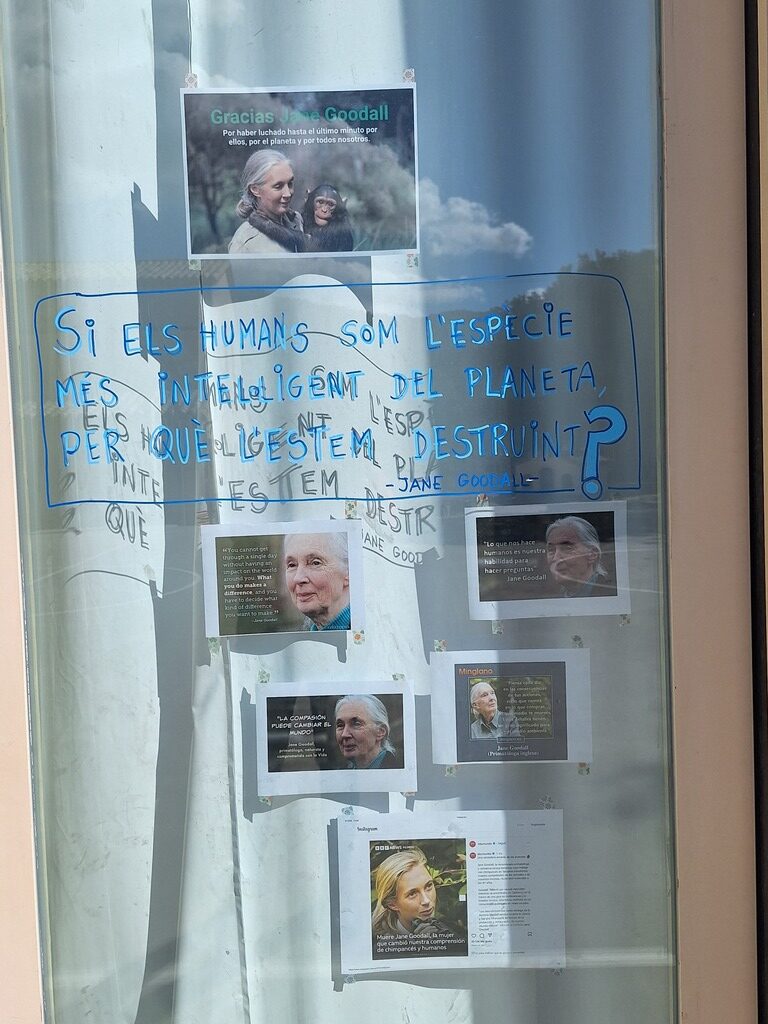 Gracias Jane Goodall
Por haber luchado hasta el último minuto por
ellos, por el planeta y por todos nosotros.
Si ELS HUMANS SOM L'ESPÈCIE
MÉS INTEL·LIGENT DEL PLANETA,
PER QUÈ L'ESTEM DESTRUINT?
-JANE GOODALL-
"You cannot get
through a single day
without having an
impact on the world
around you. What
you do makes a
difference, and you
have to decide what
kind of difference
you want to make."
- Jane Goodall
"Lo que nos hace
humanos es nuestra
habilidad para
hacer preguntas"
Jane Goodall
"LA COMPASIÓN
PUEDE CAMBIAR EL
MUNDO"
Jane Goodall,
primatóloga, naturista y
comprometida con la Vida
Minglano
Jane Goodall
(Primatóloga inglesa)
Instagram
BBC NEWS MUNDO
Muere Jane Goodall, la mujer
que cambió nuestra comprensión
de chimpancés y humanos